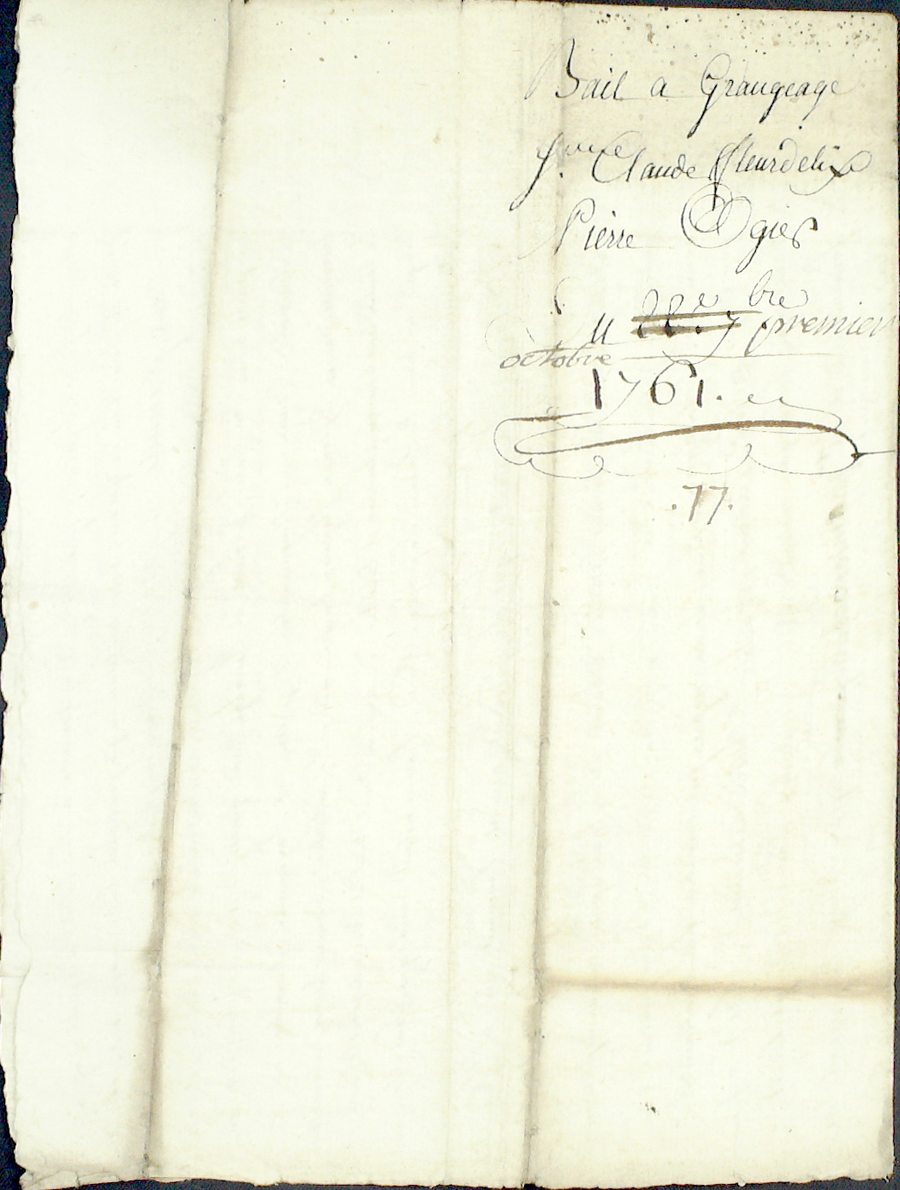 Bail a Grangeage
Claude fleurdelix
Pierre Ogier
Du premier
octobre
1761.
.77.